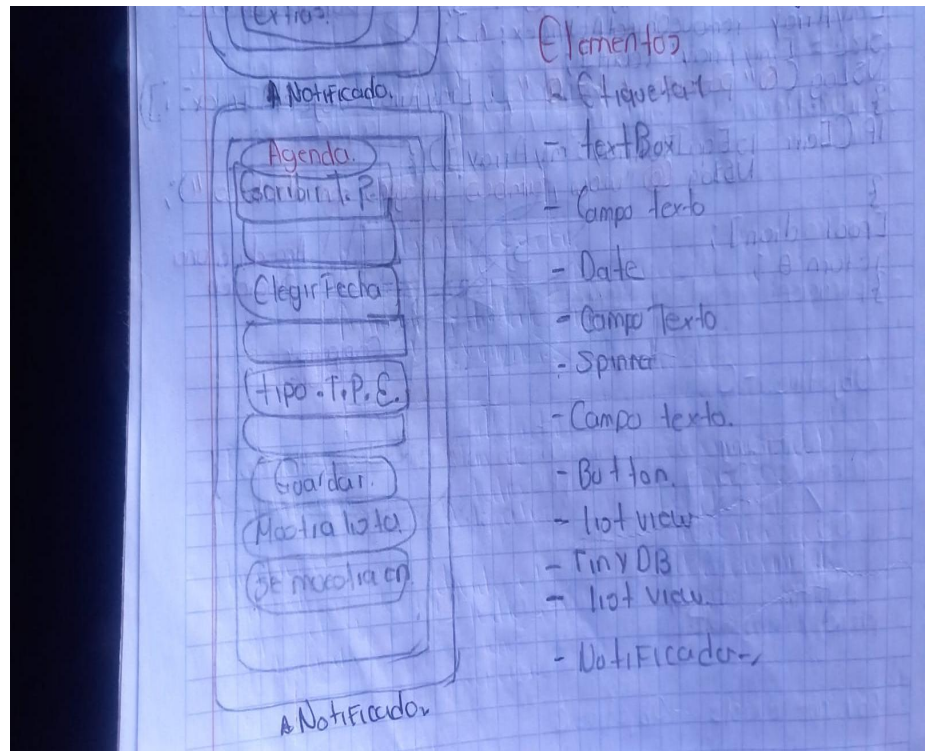 Extras.
A Notificado.
Agenda.
Escribir t. P.
Elegir Fecha
tipo. T.P.E.
Guardar.
Mostra lista
Se muestra en
A Notificador
Elementos
Etiquetar
- textBox
- Campo texto
- Date
- Campo Texto
- Spinner
- Campo texto.
- Button.
- list view
- Tiny DB
- list view
- Notificador